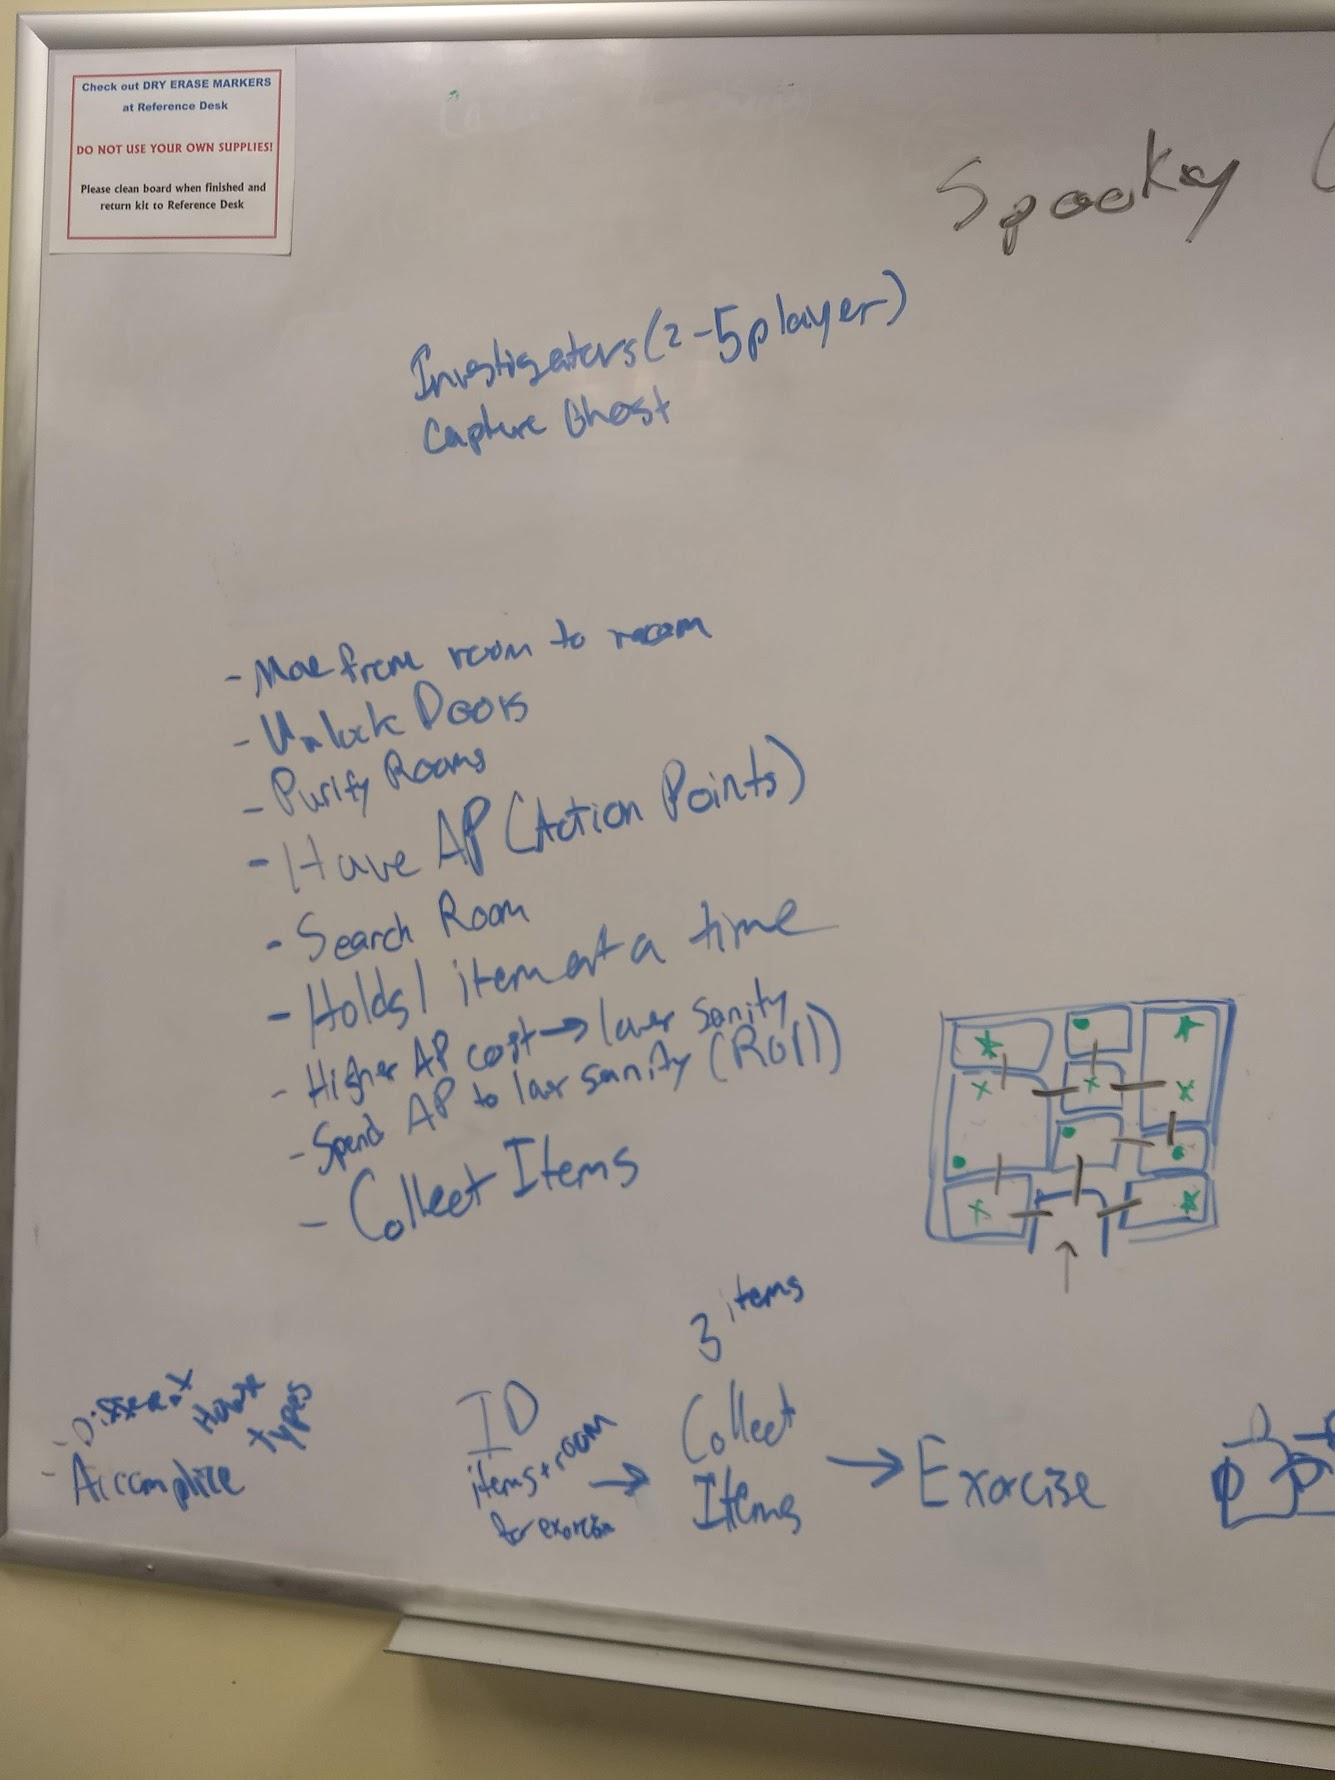 Check out DRY ERASE MARKERS
at Reference Desk
DO NOT USE YOUR OWN SUPPLIES!
Please clean board when finished and
return kit to Reference Desk
Spooky
Investigators (2-5 player)
Capture Ghost
- Move from room to room
- Unlock Doors
- Purify Rooms
- Have AP (Action Points)
- Search Room
- Holds 1 item at a time
- Higher AP cost → lower sanity
- Spend AP to lower sanity (Roll)
- Collect Items
3 items
- Different
types
- Accomplice
ID
items + room
for exorcism
→
Collect
Items
→ Exorcise